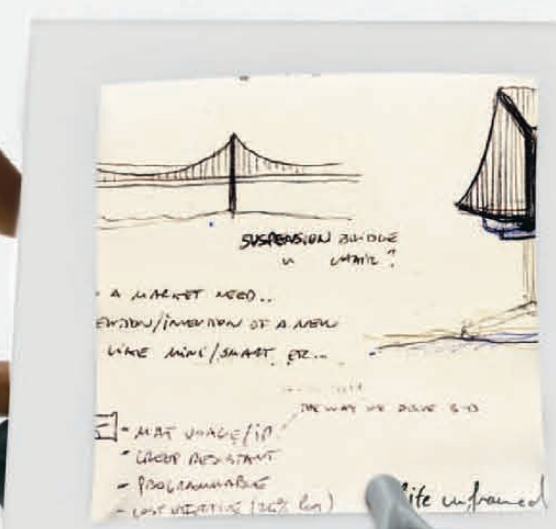 SUSPENSION BRIDGE
CHAIR?
A MARKET NEED..
/INVENTION OF A NEW
LIKE MINI/SMART, ETC...
THE WAY WE
- MAT USAGE/IP
- CREEP RESISTANT
- PROGRAMMABLE
- COST EFFECTIVE
life unframed